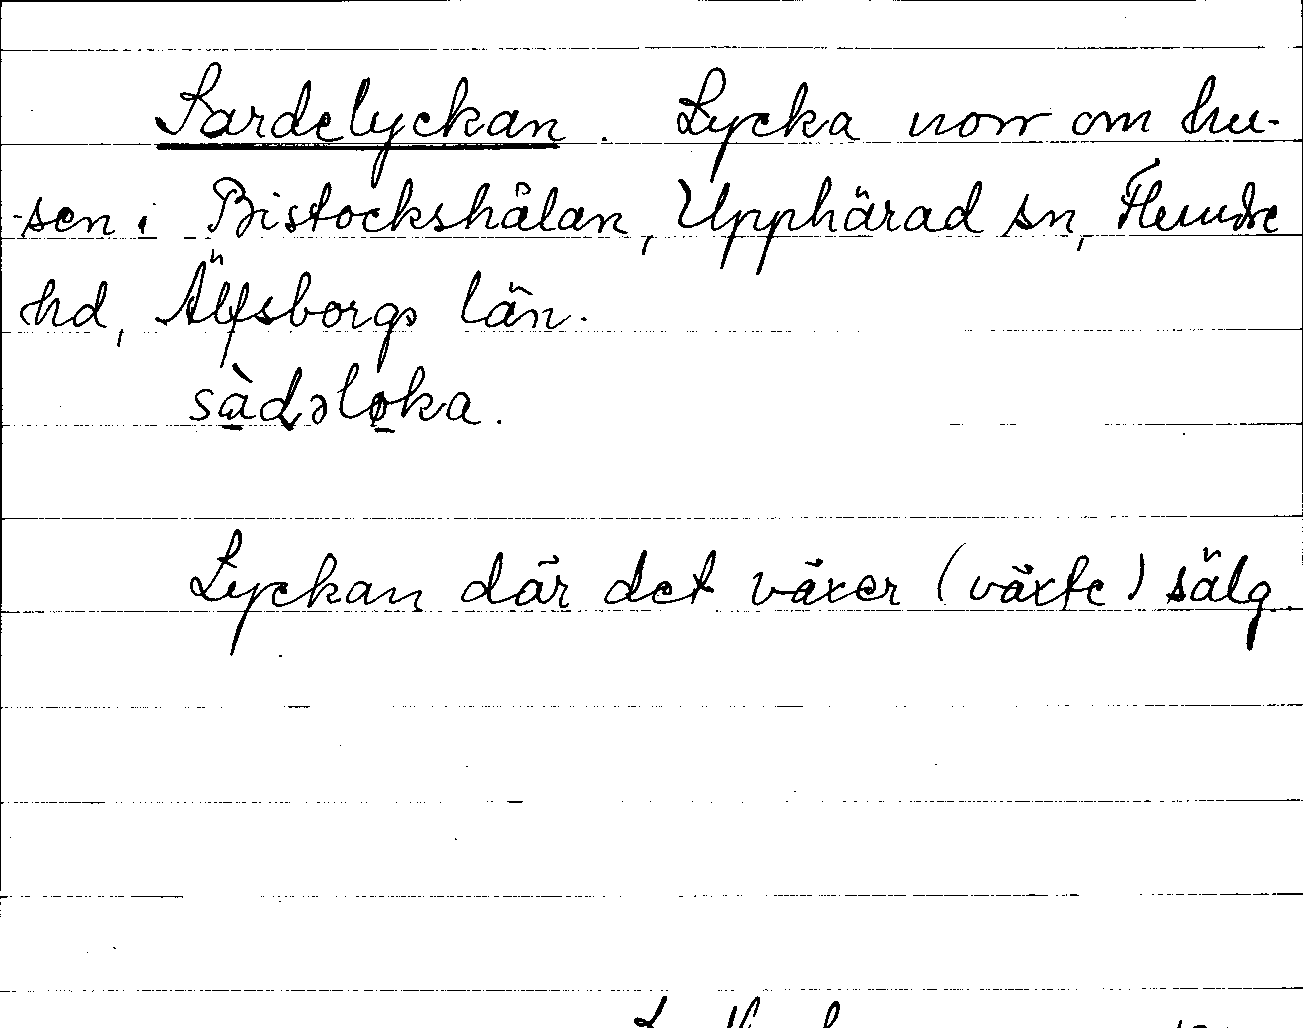 Sardelyckan. Lycka norr om hu-
sen i Bistockshålan, Upphärad sn, Flundre
hd, Älfsborgs län.
sàdəløka.
Lyckan där det växer (växte) sälg.